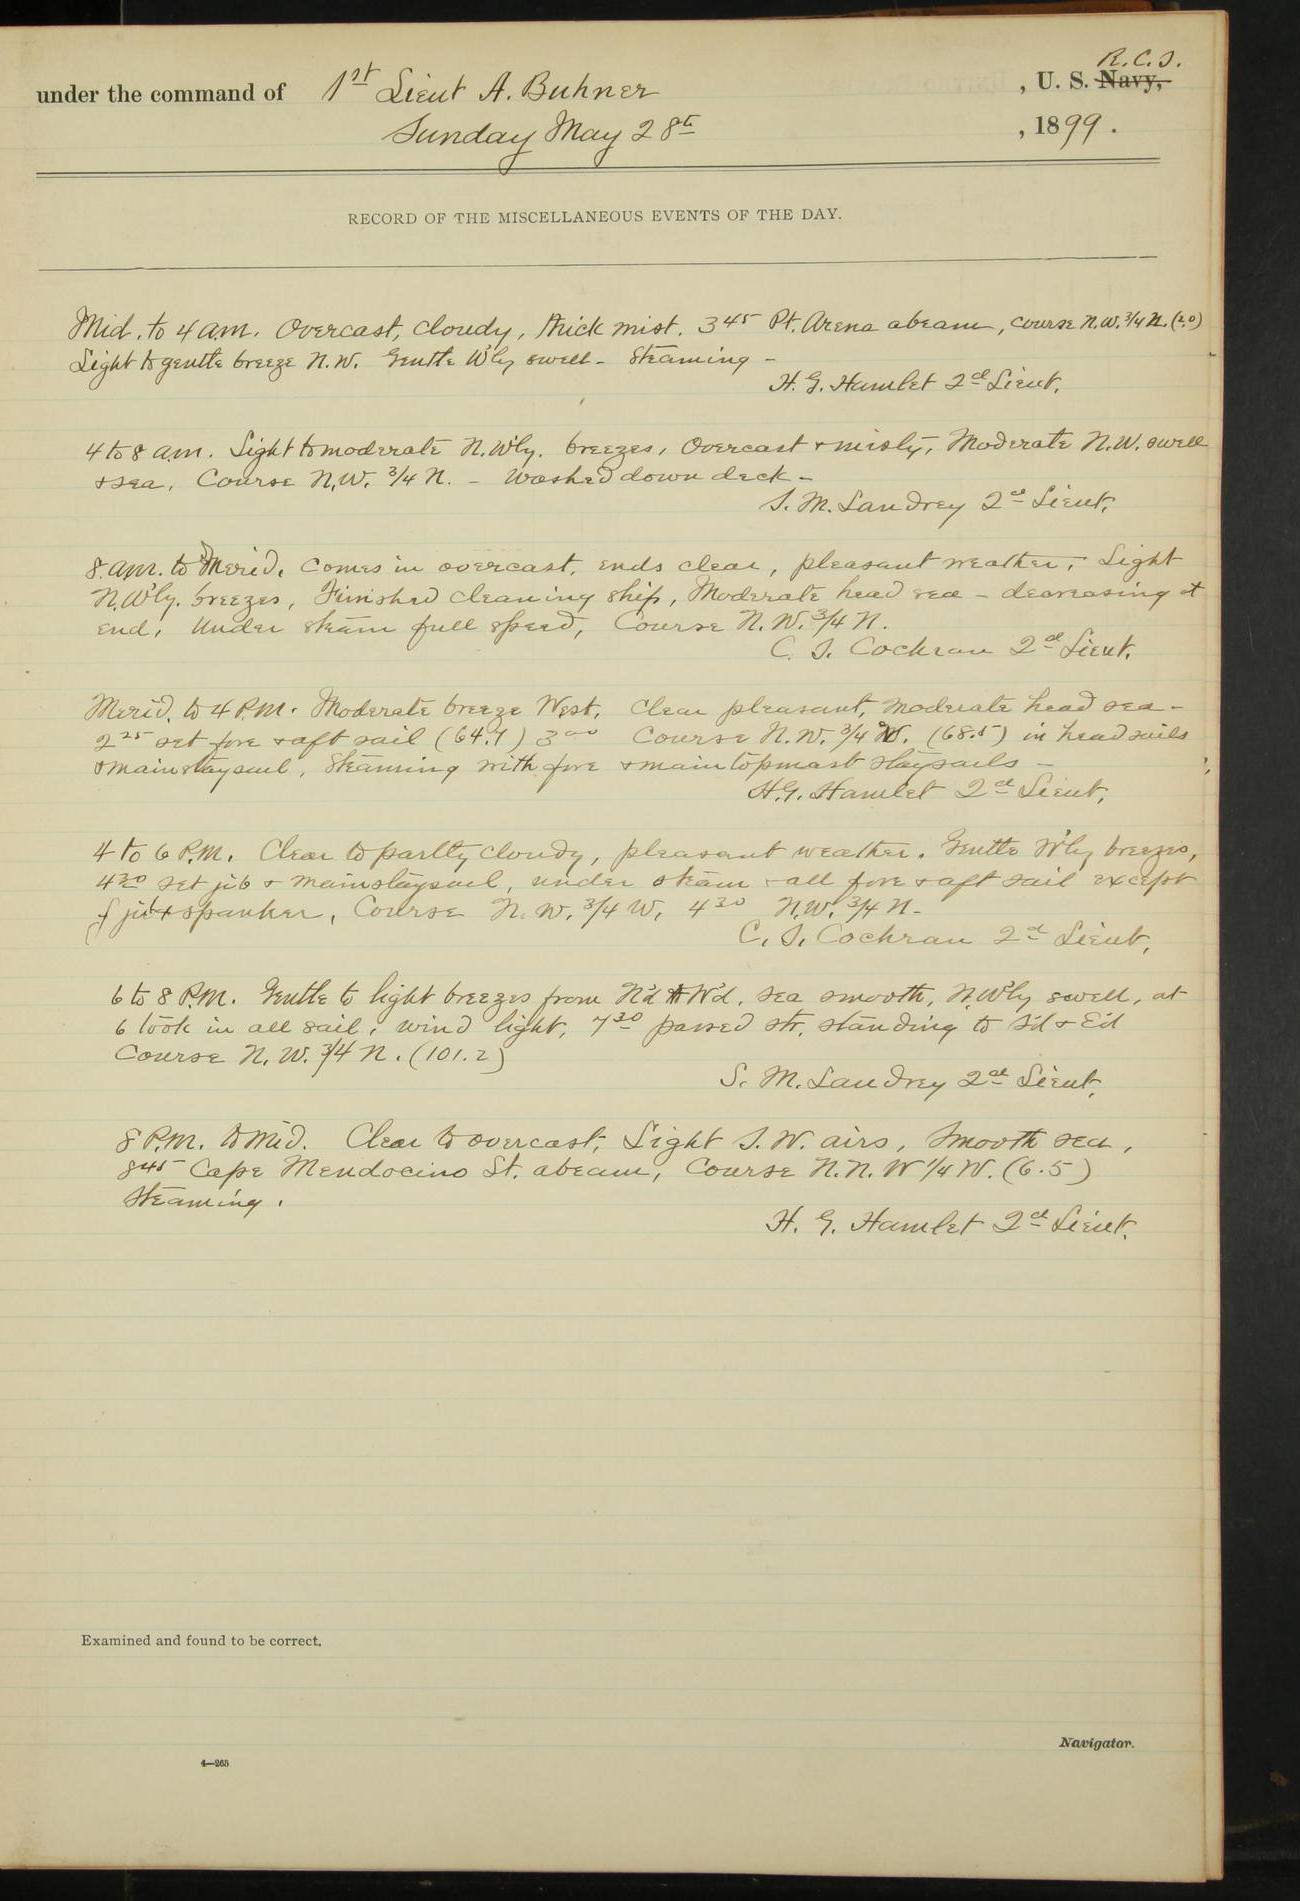 R.C.S.
under the command of 1st Lieut A. Buhner , U. S. Navy,
Sunday May 28th , 1899.
RECORD OF THE MISCELLANEOUS EVENTS OF THE DAY.
Mid. to 4 a.m. Overcast, cloudy, thick mist. 3 45 Pt. Arena abeam, course N.W. 3/4 N. (2.0)
Light to gentle breeze N.W. Gentle W'ly swell - Steaming -
H. G. Hamlet 2d Lieut.
4 to 8 a.m. Light to moderate N.W'ly. breezes, Overcast + misty, Moderate N.W. swell
+ sea. Course N.W. 3/4 N. - Washed down deck -
S. M. Landrey 2d Lieut.
8 a.m. to Merid. Comes in overcast, ends clear, pleasant weather, Light
N.W'ly. breezes, Finished cleaning ship, Moderate head sea - decreasing at
end, Under steam full speed, Course N.W. 3/4 N.
C. S. Cochran 2d Lieut.
Merid. to 4 P.M. Moderate breeze West, Clear pleasant, moderate head sea -
2 25 set fore + aft sail (64.4) 3 00 Course N.W. 3/4 W. (68.5) in headsails
+ mainstaysail, Steaming with fore + main topmast staysails -
H.G. Hamlet 2d Lieut.
4 to 6 P.M. Clear to partly cloudy, pleasant weather. Gentle W'ly breezes,
4 30 set jib + mainstaysail, under steam + all fore + aft sail except
f jib + spanker, Course N.W. 3/4 W, 4 30 N.W. 3/4 N -
C. S. Cochran 2d Lieut.
6 to 8 P.M. Gentle to light breezes from N'd + W'd, sea smooth, N.W'ly swell, at
6 took in all sail, wind light, 7 30 passed str. standing to S'd + E'd
Course N. W. 3/4 N. (101.2)
S. M. Landrey 2d Lieut.
8 P.M. to Mid. Clear to overcast, Light S.W. airs, Smooth sea,
8 45 Cape Mendocino Lt. abeam, Course N.N.W 1/4 W. (6.5)
Steaming.
H. G. Hamlet 2d Lieut.
Examined and found to be correct.
Navigator.
4—265